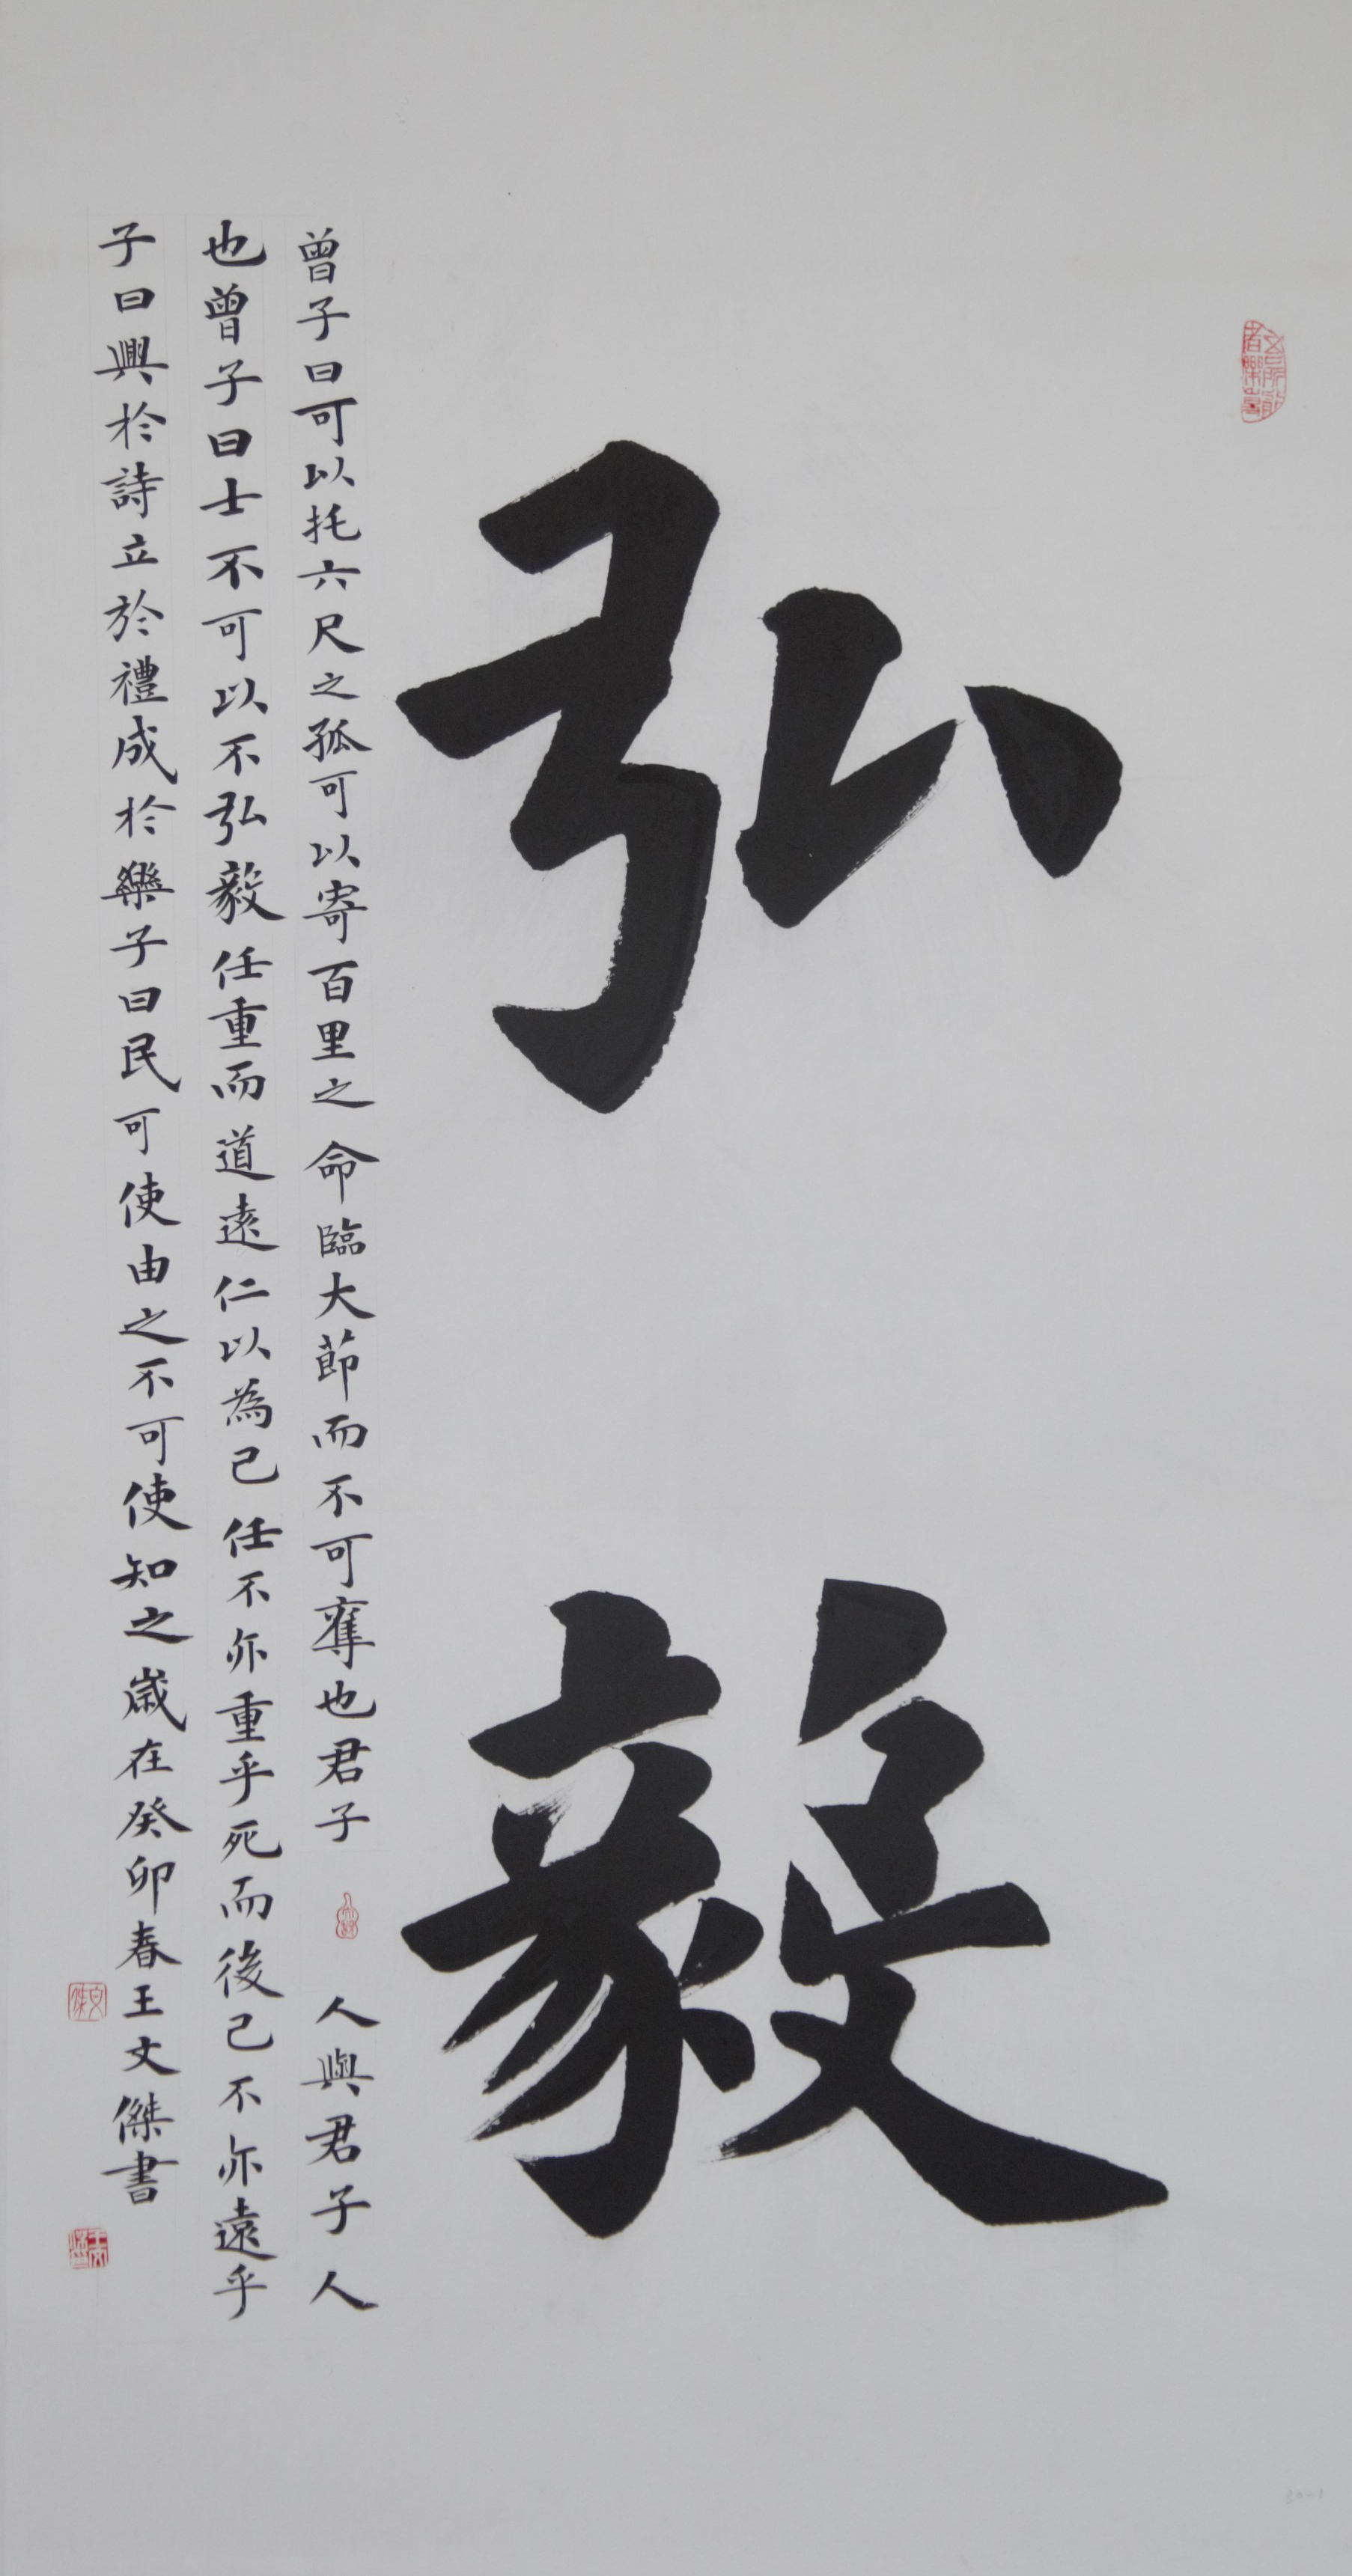 弘毅
曾子曰可以托六尺之孤可以寄百里之命臨大節而不可奪也君子人與君子人
也曾子曰士不可以不弘毅任重而道遠仁以為己任不亦重乎死而後已不亦遠乎
子曰興於詩立於禮成於樂子曰民可使由之不可使知之歲在癸卯春王文傑書